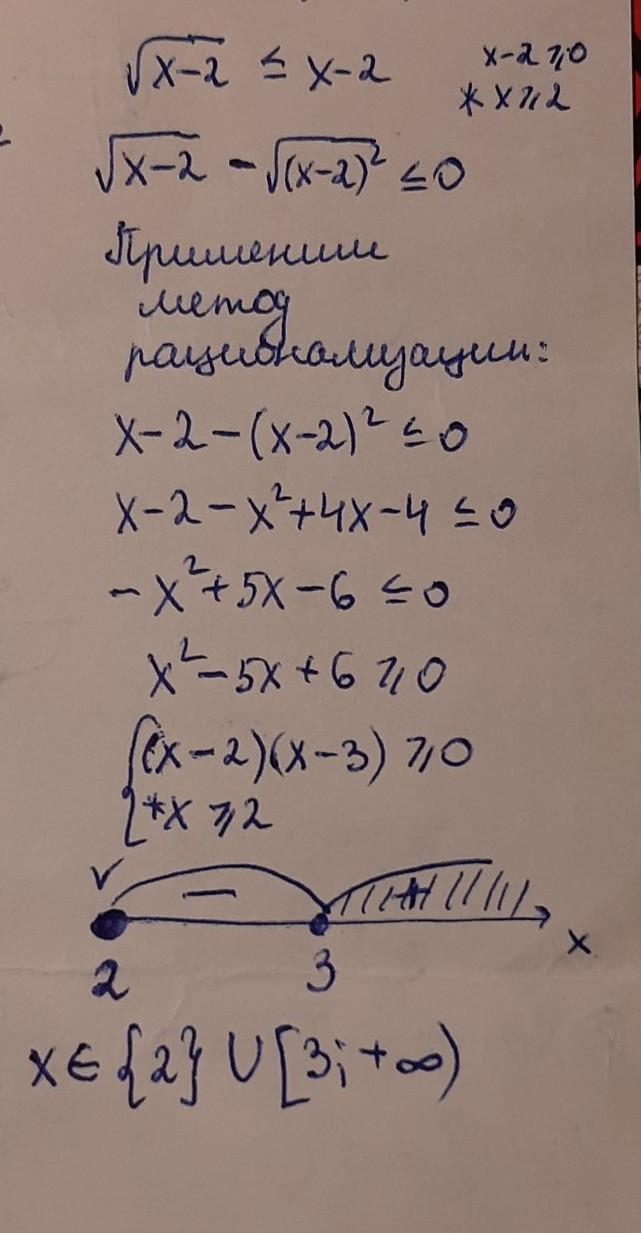 √x-2 ≤ x-2
x-2 ⩾ 0
* x ⩾ 2
√x-2 - √(x-2)² ≤ 0
Применим
метод
рационализации:
x-2-(x-2)² ≤ 0
x-2-x²+4x-4 ≤ 0
-x²+5x-6 ≤ 0
x²-5x+6 ⩾ 0
{(x-2)(x-3) ⩾ 0
*x ⩾ 2
v - +
2 3 x
x ∈ {2} ∪ [3;+∞)